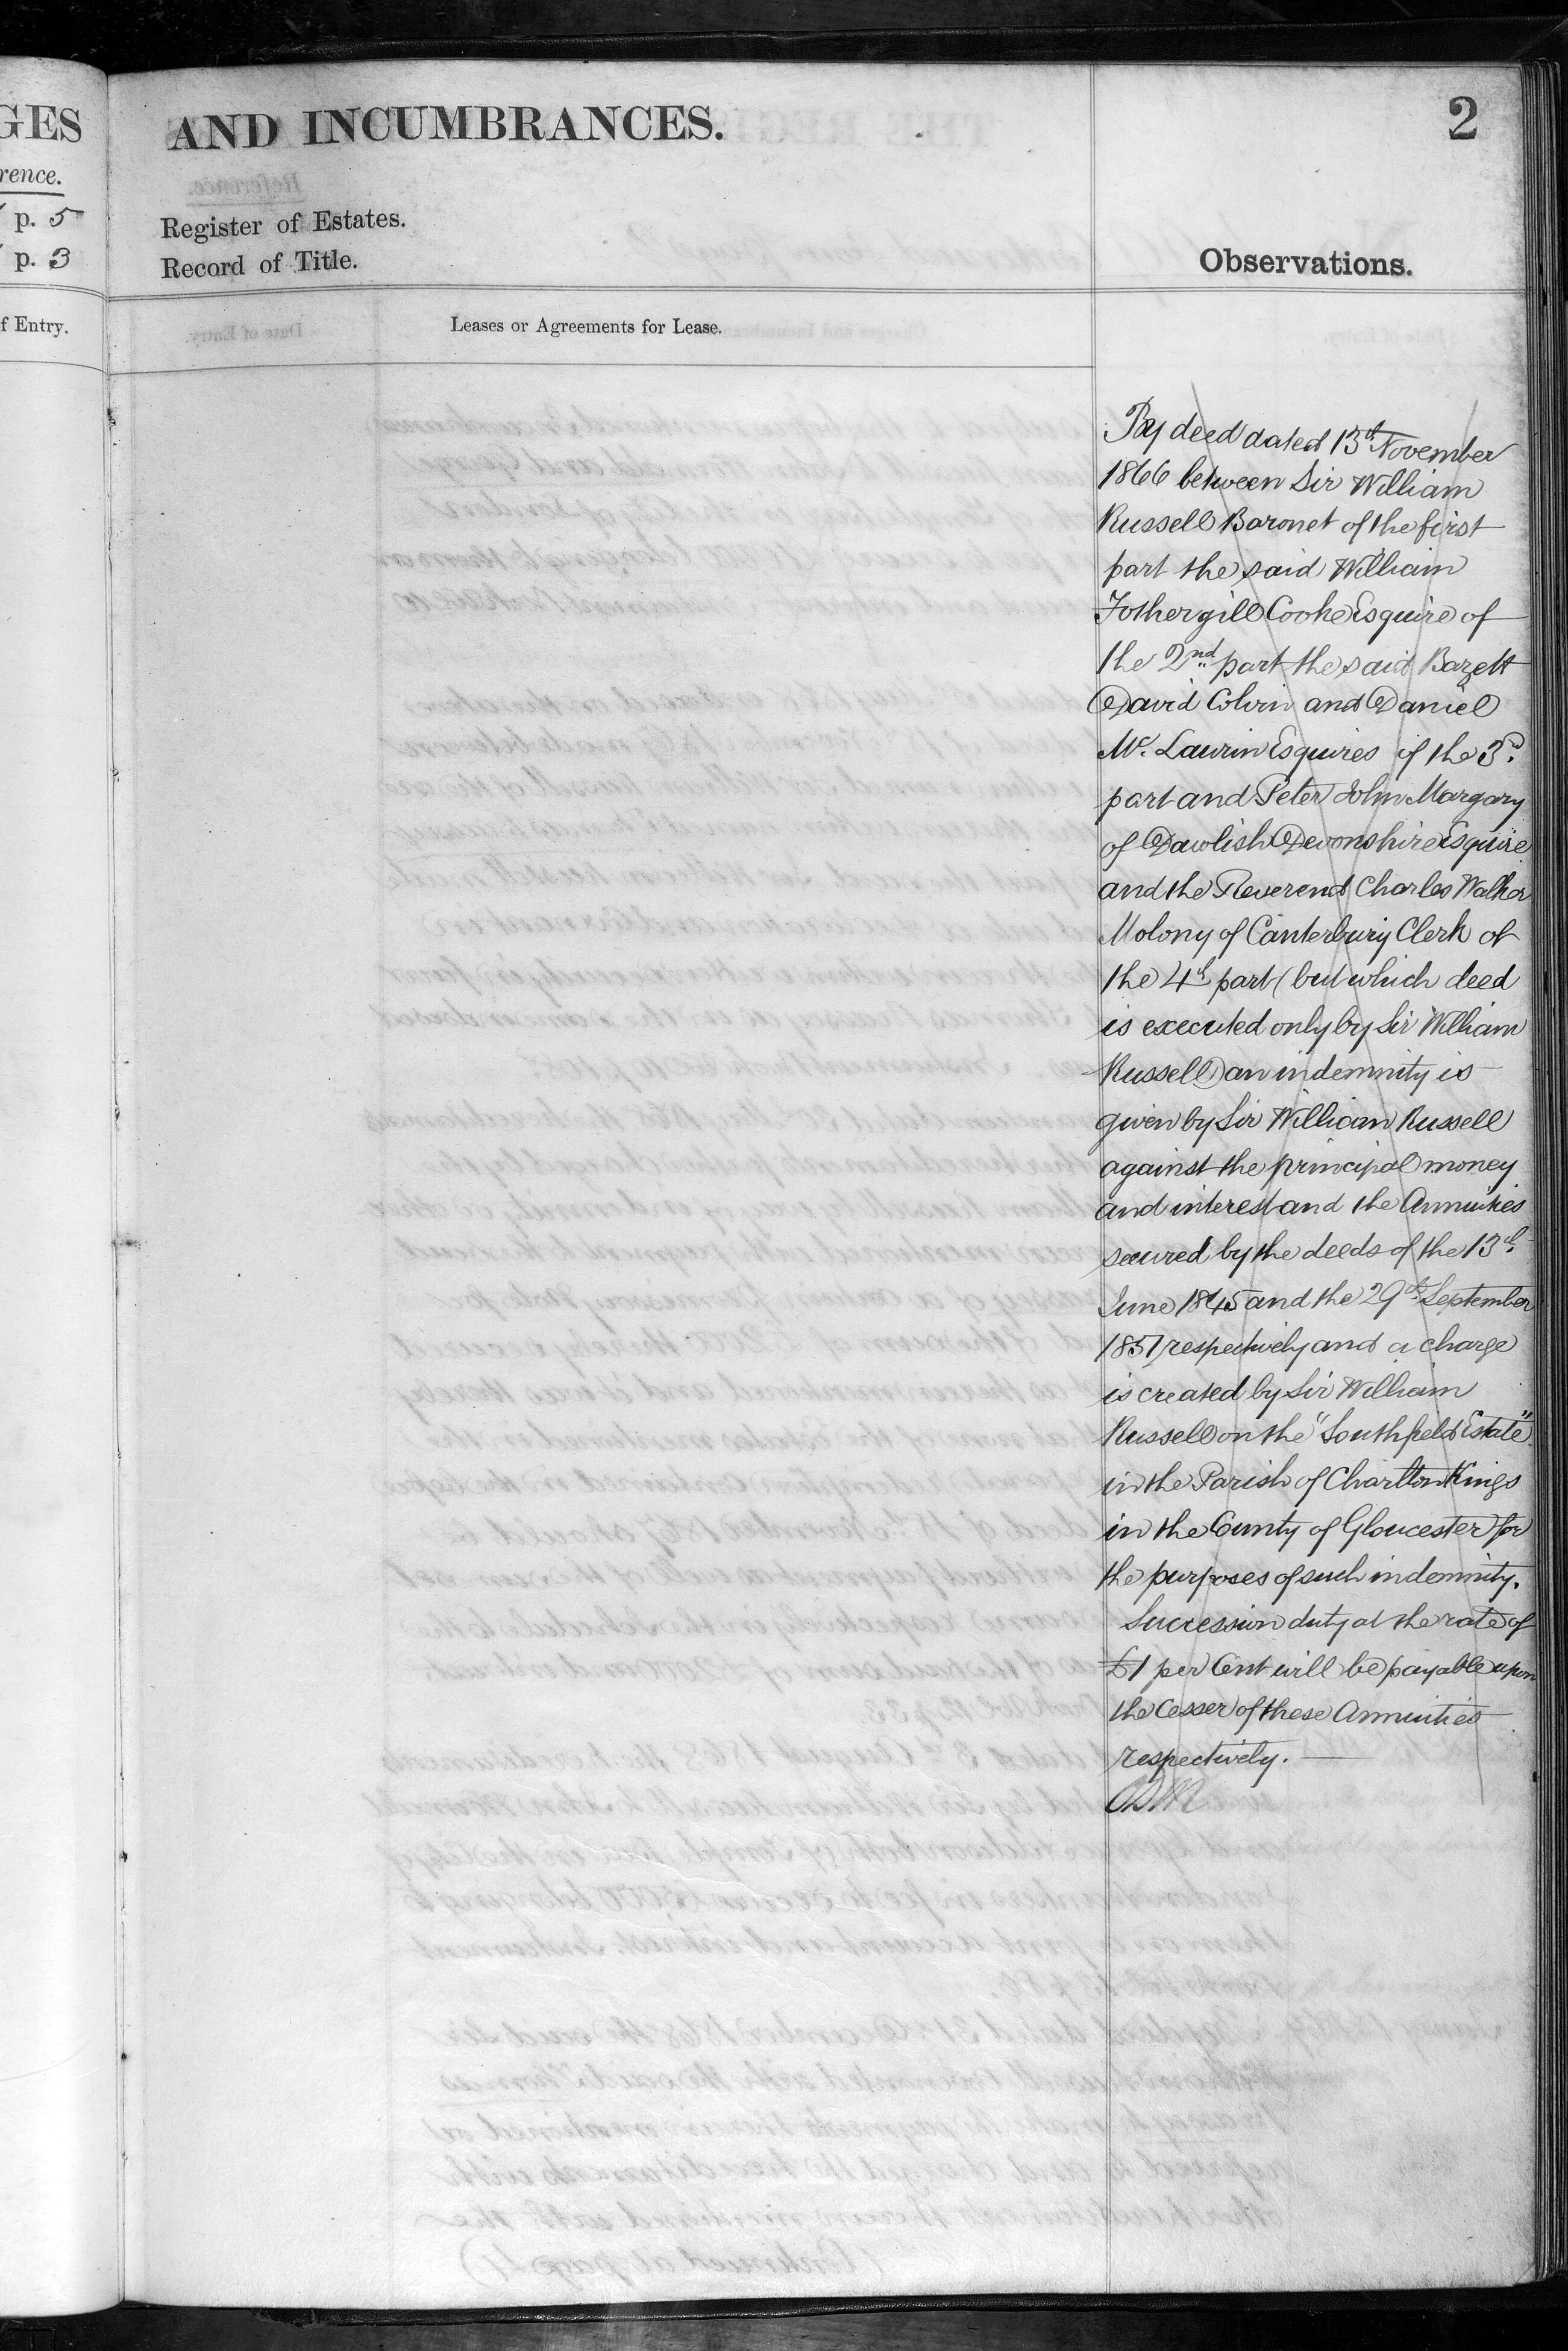 GES
rence.
p. 5
p. 3
f Entry.
AND INCUMBRANCES.
2
Register of Estates.
Record of Title.
Observations.
Leases or Agreements for Lease.
By deed dated 13th November
1866 between Sir William
Russell Baronet of the first
part the said William
Fothergill Cooke Esquire of
the 2nd part the said Bazett
David Colvin and Daniel
Mc. Laurin Esquires of the 3d.
part and Peter John Margary
of Dawlish Devonshire Esquire
and the Reverend Charles Walker
Molony of Canterbury Clerk of
the 4th part (but which deed
is executed only by Sir William
Russell) an indemnity is
given by Sir William Russell
against the principal money
and interest and the Annuities
secured by the deeds of the 13th.
June 1845 and the 29th. September
1851 respectively and a charge
is created by Sir William
Russell on the "Southfield Estate"
in the Parish of Charlton Kings
in the County of Gloucester for
the purposes of such indemnity.
Succession duty at the rate of
£1 per Cent will be payable upon
the Cesser of these Annuities
respectively.